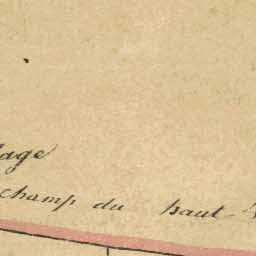 lage
champ du haut-